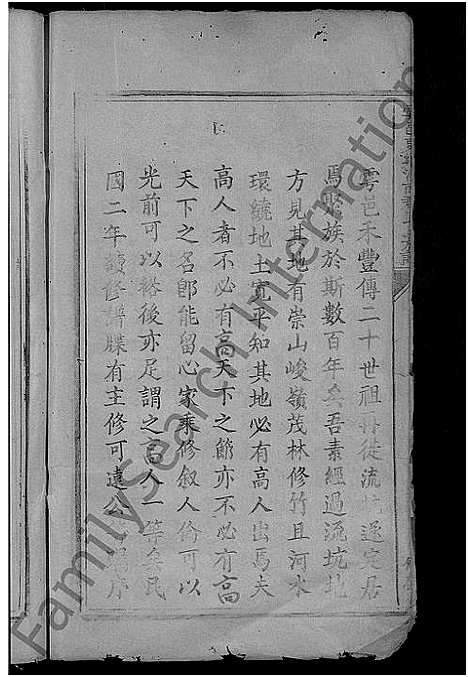 雩邑禾豐傳二十世祖再徒流坑遂定居
焉聚族於斯數百年矣吾素經過流坑地
方見其地有崇山峻嶺茂林修竹且河水
環繞地土寬平知其地必有高人出焉夫
高人者不必有高天下之節亦不必有高
天下之名卽能留心家乘修敘人倫可以
光前可以裕後亦足謂之高人一等矣民
國二年續修譜牒有主修可遠公 序
FamilySearch International